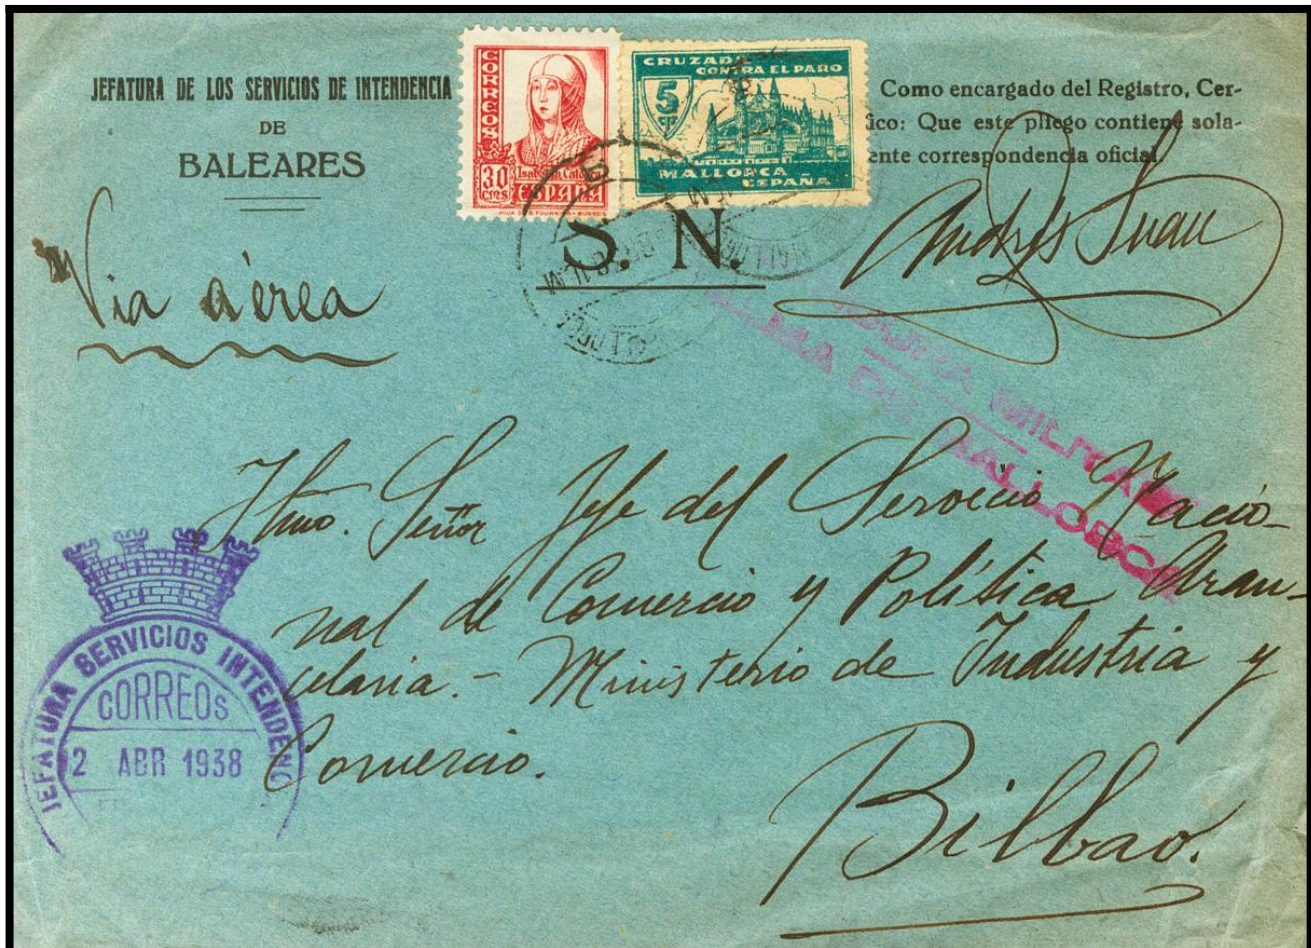 JEFATURA DE LOS SERVICIOS DE INTENDENCIA
DE
BALEARES
CORREOS
30
cms
Isabel la Católica
ESPAÑA
HIJA DE B. FOURNIER - BURGOS
CRUZADA
CONTRA EL PARO
5
MALLORCA -
ESPAÑA
Como encargado del Registro, Cer-
ico: Que este pliego contiene sola-
ente correspondencia oficial.
S. N.
Via aérea
MILITAR
PALMA DE MALLORCA
Ilmo. Señor Jefe del Servicio Nacio-
nal de Comercio y Política Aran-
celaria.- Ministerio de Industria y
Comercio.
Bilbao.
JEFATURA SERVICIOS INTENDENC
CORREOS
2 ABR 1938